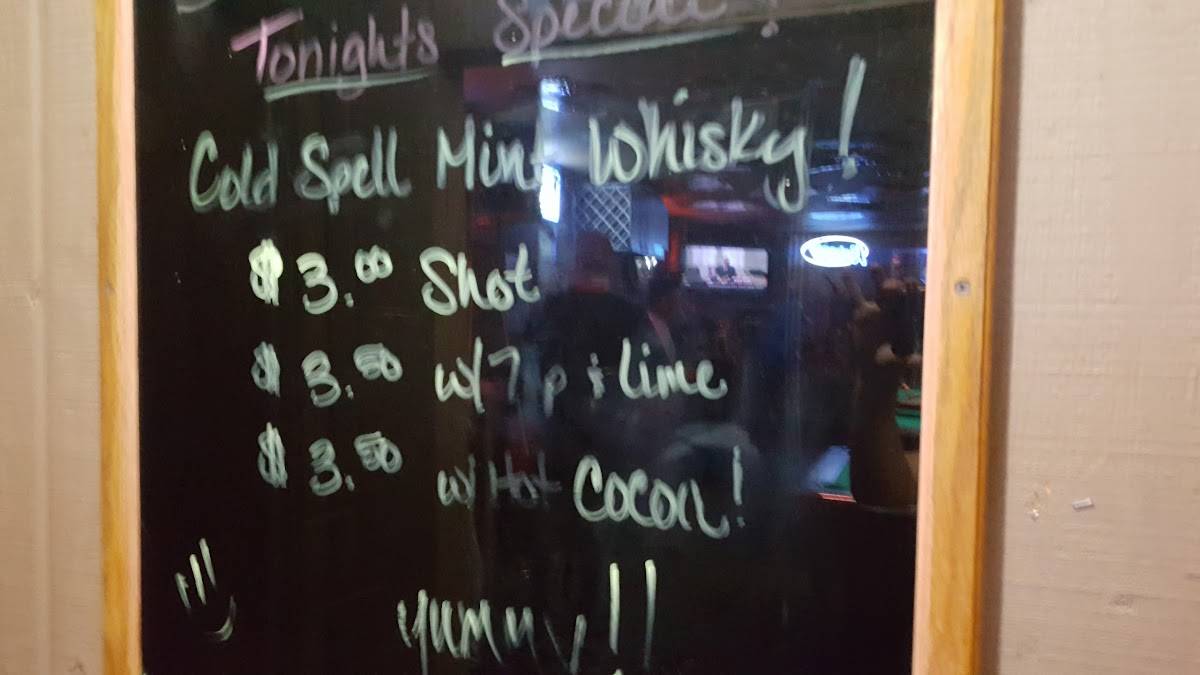 Tonights Special!
Cold Spell Mint Whisky!
$3.00 Shot
$3.50 w/ 7up & lime
$3.50 w/ Hot Cocoa!
yummy!!